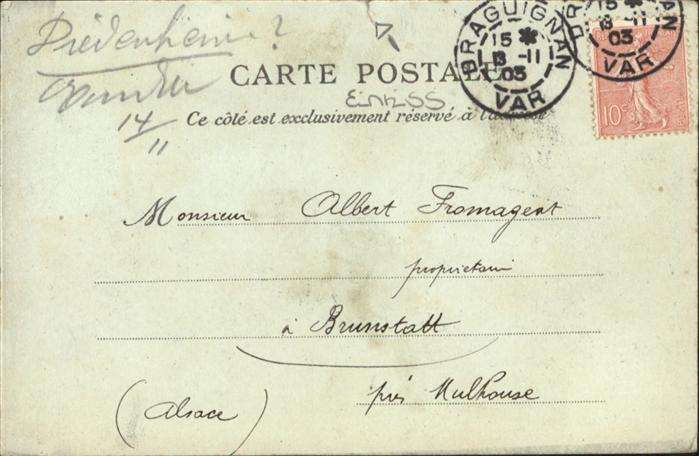 Diedenheim ?
14/11
CARTE POSTALE
Einriss
Ce côté est exclusivement réservé à l'adresse
DRAGUIGNAN
15 *
13 -11
03
VAR
DRAGUIGNAN
15 *
13 -11
03
VAR
10c
Monsieur Albert Fromageat
propriétaire
à Brunstatt
près Mulhouse
(Alsace)